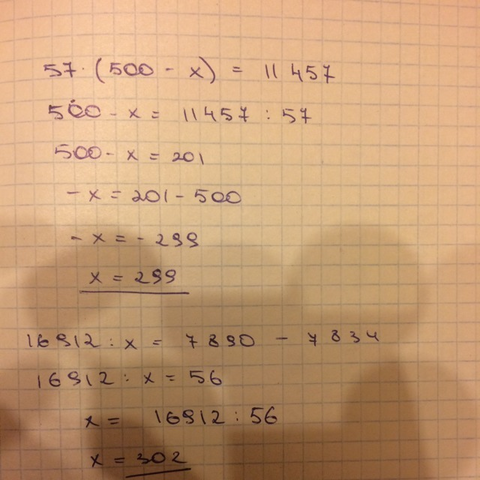 57 · (500 - x) = 11 457
500 - x = 11457 : 57
500 - x = 201
- x = 201 - 500
- x = - 299
x = 299
16912 : x = 7890 - 7834
16912 : x = 56
x = 16912 : 56
x = 302